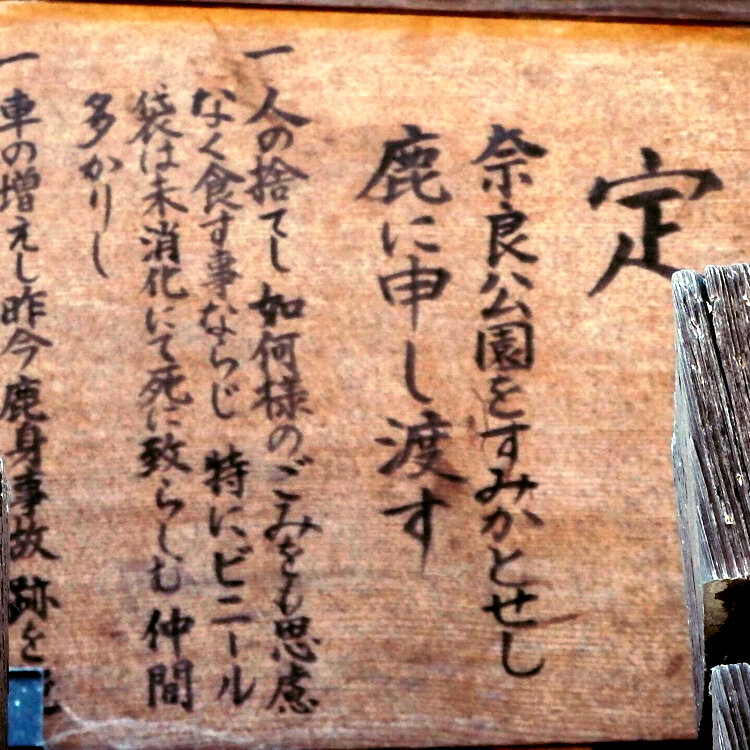 定
奈良公園をすみかとせし
鹿に申し渡す
一 人の捨てし 如何様のごみをも思慮
なく食す事ならじ 特にビニール
袋は未消化にて死に致らしむ 仲間
多かりし
一 車の増えし昨今鹿身事故 跡を